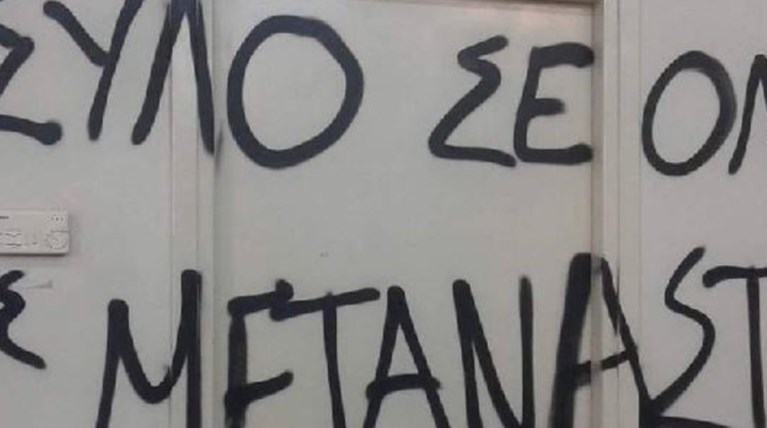 ΣΥΛΟ ΣΕ ΟΛ
Σ ΜΕΤΑΝΑΣΤ